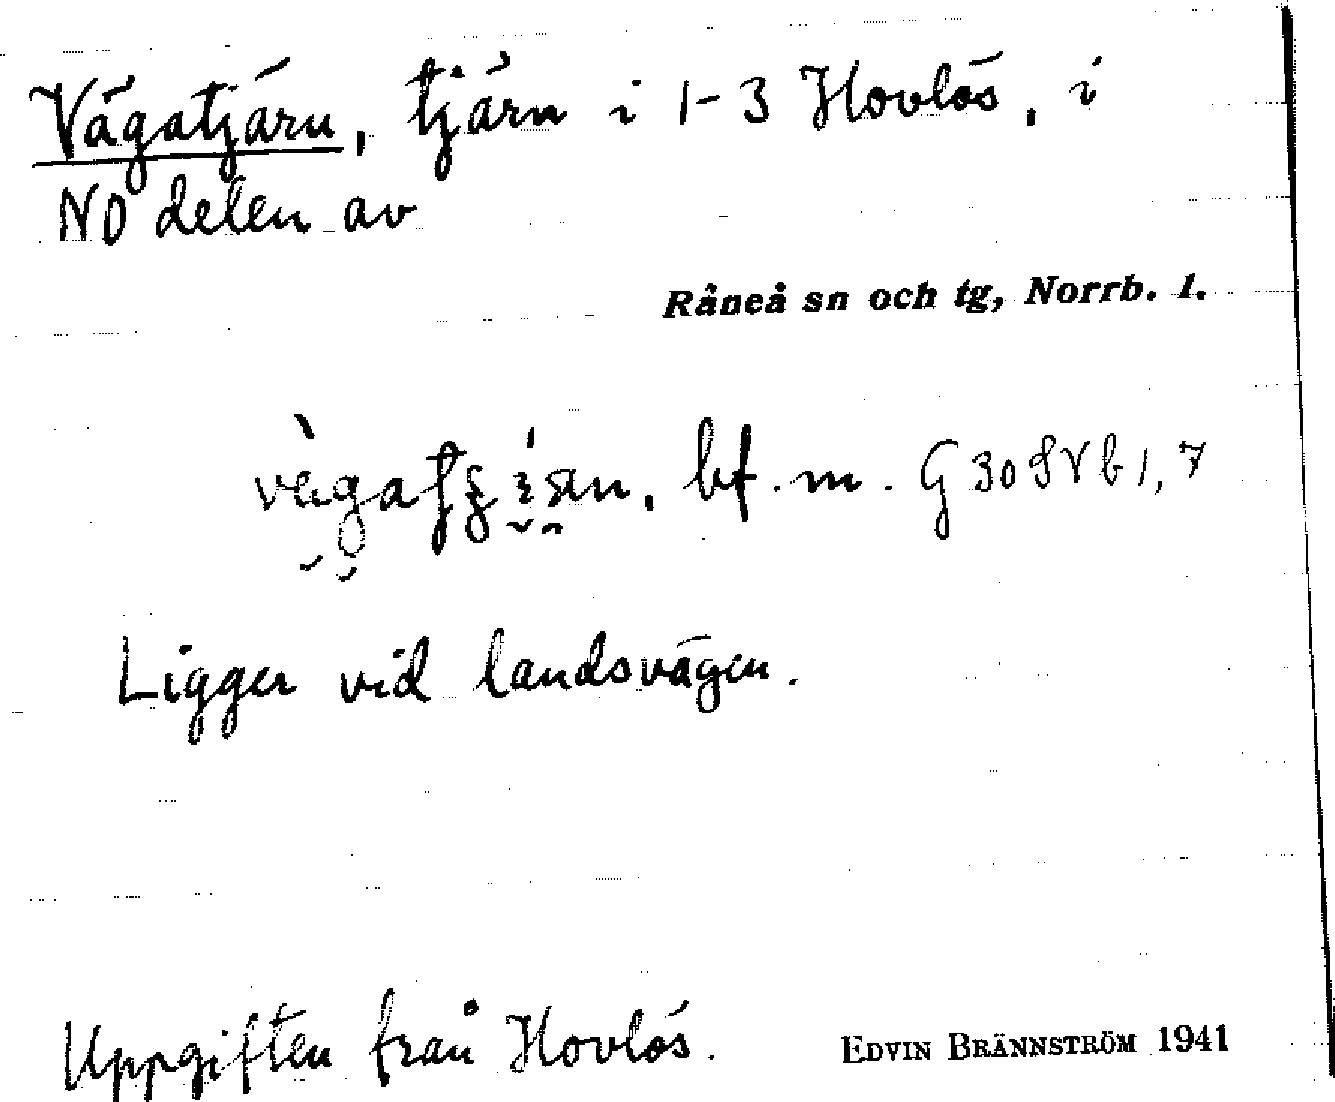 Vägatjärn, tjärn i 1-3 Hovlös, i
NO delen av
Råneå sn och tg, Norrb. l.
bf. m. G 30 SVb 1, 7
Ligger vid landsvägen.
Uppgiften från Hovlös. EDVIN BRÄNNSTRÖM 1941